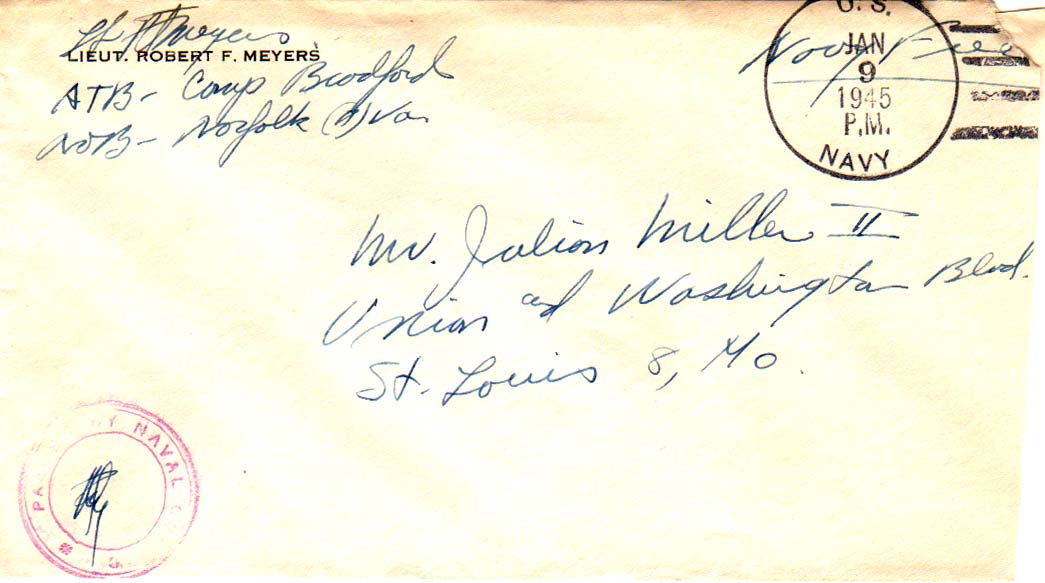 Lt RF Meyers
LIEUT. ROBERT F. MEYERS
ATB- Camp Bradford
NOB- Norfolk (11) Va
Navy Free
U. S.
JAN
9
1945
P.M.
NAVY
Mr. Julian Miller II
Union and Washington Blvd.
St. Louis 8, Mo.
PASSED BY NAVAL